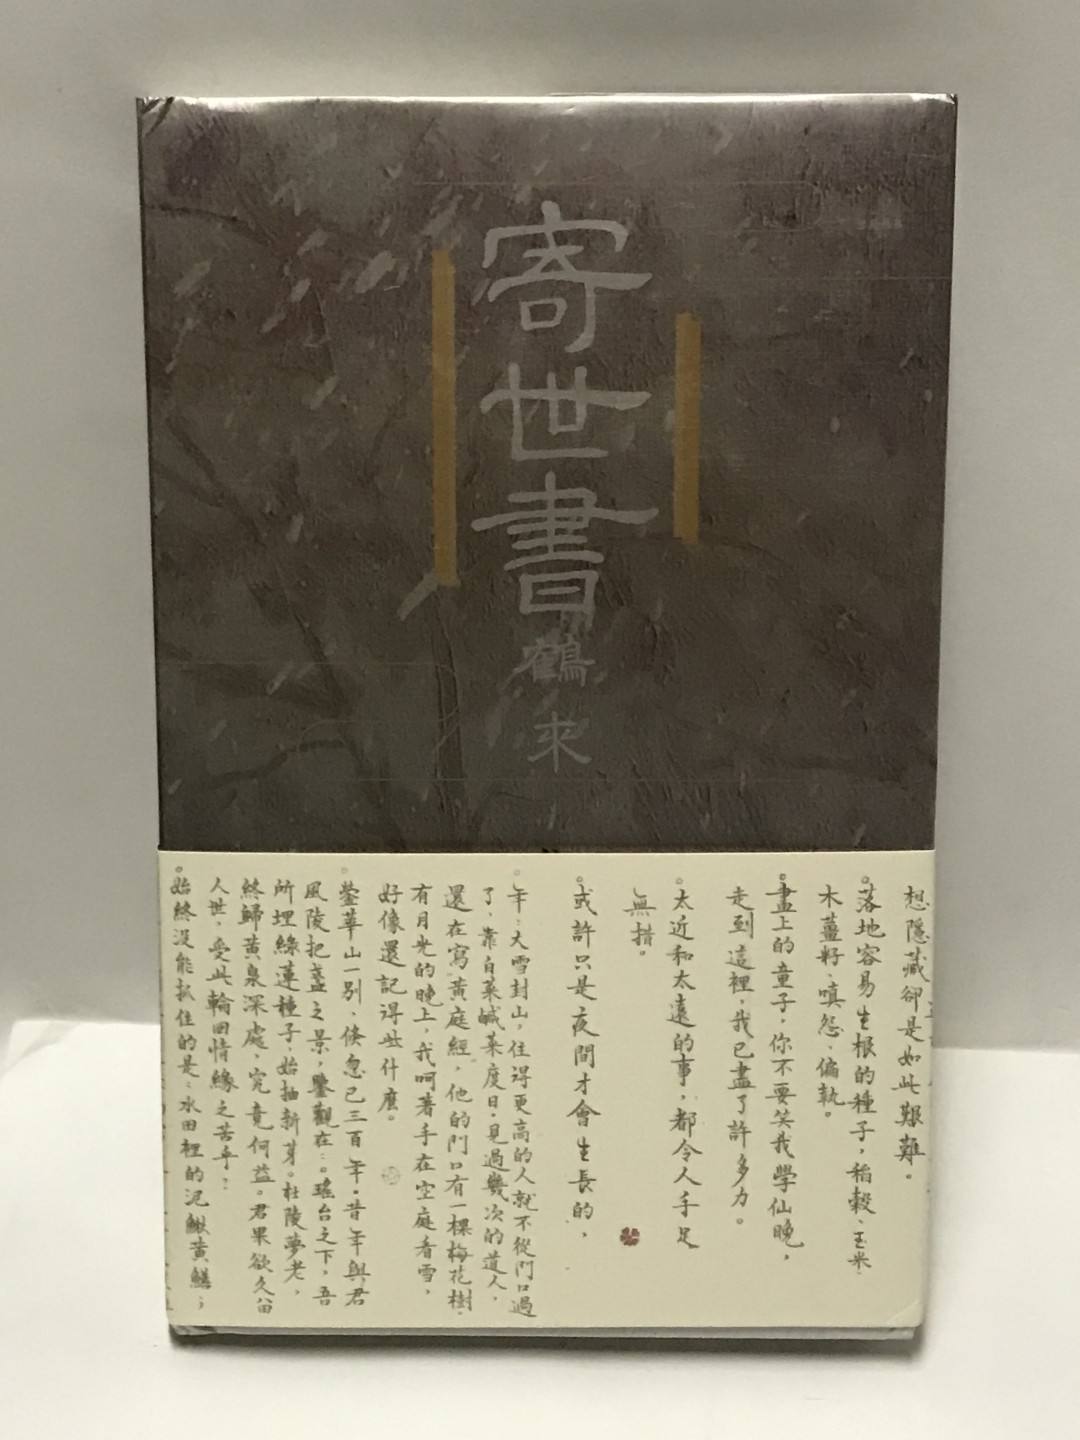 寄世書
鶴來
想隱藏卻是如此艱難。
落地容易生根的種子，稻穀、玉米、
木薑籽、嗔怨、偏執。
畫上的童子，你不要笑我學仙晚，
走到這裡，我已盡了許多力。
太近和太遠的事，都令人手足
無措。
或許只是夜間才會生長的，
年，大雪封山，住得更高的人就不從門口過
了，靠白菜鹹菜度日。見過幾次的道人，
還在寫黃庭經，他的門口有一棵梅花樹，
有月光的晚上，我呵著手在空庭看雪，
好像還記得些什麼。
蓥華山一別，倏忽已三百年。昔年與君
風陵把盞之景，鑒觀在。瑤台之下，吾
所埋綠蓮種子，始抽新芽。杜陵夢老，
終歸黃泉深處，究竟何益。君果欲久留
人世，受此輪回情緣之苦乎？
始終沒能抓住的是：水田裡的泥鰍黃鱔；